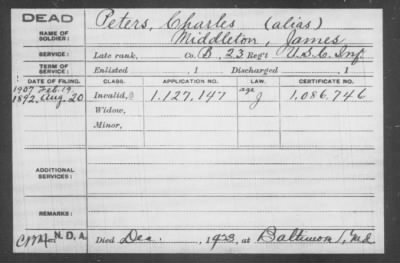 DEAD Peters, Charles (alias)
NAME OF SOLDIER: Middleton, James
SERVICE: Late rank, Co. B, 23 Reg't U.S.C. Inf.
TERM OF SERVICE: Enlisted , 1 Discharged , 1
DATE OF FILING. CLASS. APPLICATION NO. LAW. CERTIFICATE NO.
1907 Feb. 19 age
1892, Aug. 20 Invalid, 1,127,147 J 1,086,746
Widow,
Minor,
ADDITIONAL SERVICES:
REMARKS:
N.D.A. Died Dec. , 1923, at Baltimore, Md